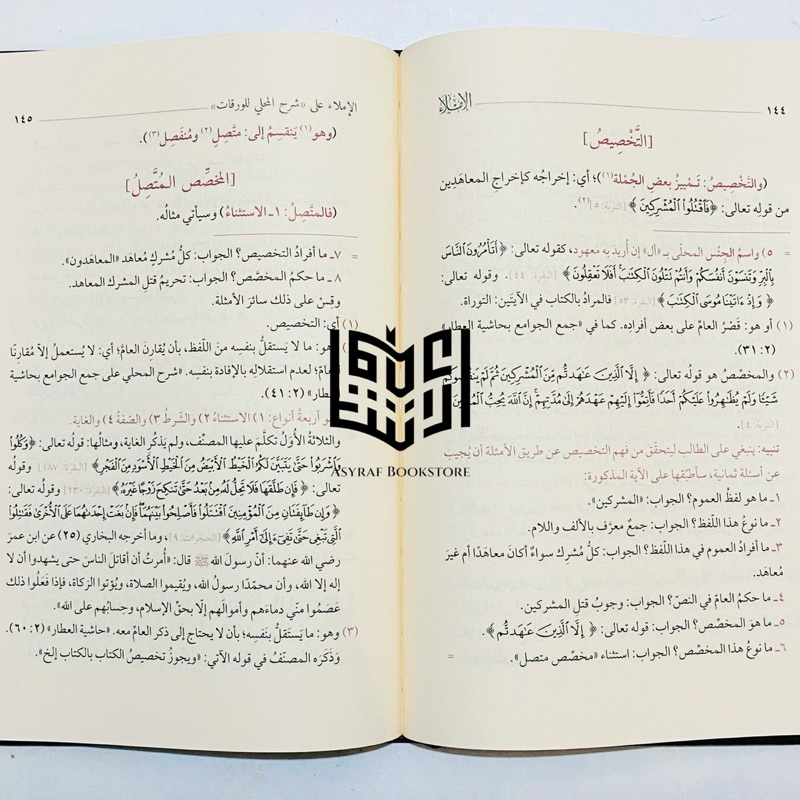 الإملاء
١٤٤
[التَّخْصِيصُ]
(والتَّخْصِيصُ: تَمْيِيزُ بعضِ الجُمْلة(١))؛ أي: إخراجُه كإخراجِ المعاهَدِين
من قوله تعالى: ﴿فَٱقْتُلُوا۟ ٱلْمُشْرِكِينَ﴾ [التوبة: ٥](٢).
= ٥) واسمُ الجِنْس المحلّى بـ «أل» إن أُريدَ به معهود، كقوله تعالى: ﴿أَتَأْمُرُونَ ٱلنَّاسَ
بِٱلْبِرِّ وَتَنسَوْنَ أَنفُسَكُمْ وَأَنتُمْ تَتْلُونَ ٱلْكِتَٰبَ أَفَلَا تَعْقِلُونَ﴾ [البقرة: ٤٤]. وقوله تعالى:
﴿وَإِذْ ءَاتَيْنَا مُوسَى ٱلْكِتَٰبَ﴾ [البقرة: ٥٣] فالمرادُ بالكتاب في الآيتَين: التوراة.
(١) أو هو: قَصْرُ العامّ على بعض أفرادِه. كما في «جمع الجوامع بحاشية العطار»
(٢: ٣١).
(٢) والمخصّصُ هو قولُه تعالى: ﴿إِلَّا ٱلَّذِينَ عَٰهَدتُّم مِّنَ ٱلْمُشْرِكِينَ ثُمَّ لَمْ
شَيْـًٔا وَلَمْ يُظَٰهِرُوا۟ عَلَيْكُمْ أَحَدًا فَأَتِمُّوٓا۟ إِلَيْهِمْ عَهْدَهُمْ إِلَىٰ مُدَّتِهِمْ إِنَّ ٱللَّهَ يُحِبُّ
[التوبة: ٤].
تنبيه: ينبغي على الطالب ليتحقّقَ من فهم التخصيص عن طريق الأمثلة أن يُجيبَ
عن أسئلة ثمانية، سأطبّقها على الآية المذكورة:
١ـ ما هو لفظُ العموم؟ الجواب: «المشركين».
٢ـ ما نوعُ هذا اللّفظ؟ الجواب: جمعٌ معرَّف بالألف واللام.
٣ـ ما أفرادُ العموم في هذا اللّفظ؟ الجواب: كلُّ مُشرك سواءٌ أكانَ معاهَدًا أم غيرَ
مُعاهَد.
٤ـ ما حكمُ العامّ في النصّ؟ الجواب: وجوبُ قتلِ المشركين.
٥ـ ما هوَ المخصّص؟ الجواب: قوله تعالى: ﴿إِلَّا ٱلَّذِينَ عَٰهَدتُّم﴾.
٦ـ ما نوعُ هذا المخصّص؟ الجواب: استثناء «مخصّص متصل». =
الإملاء على «شرح المحلي للورقات»
١٤٥
(وهو(١) يَنقسِمُ إلى: متَّصِل(٢) ومُنفَصِل(٣)).
[المُخصِّص المُتَّصِلُ]
(فالمتَّصِلُ: ١ـ الاستثناءُ) وسيأتي مثالُه.
= ٧ـ ما أفرادُ التخصيص؟ الجواب: كلُّ مشركٍ مُعاهَد «المعاهَدون».
٨ـ ما حكمُ المخصَّص؟ الجواب: تحريمُ قتلِ المشرك المعاهد.
وقِسْ على ذلك سائرَ الأمثلة.
(١) أي: التخصيص.
هو: ما لا يَستقلُّ بنفسِه منَ اللّفظ، بأن يُقارِنَ العامّ؛ أي: لا يُستعملُ إلا مقارِنًا
لعدم استقلالِه بالإفادة بنفسِه. «شرح المحلي على جمع الجوامع بحاشية
العطار» (٢: ٤١).
أربعةُ أنواع: ١) الاستثناءُ ٢) والشّرطُ ٣) والصّفةُ ٤) والغاية.
والثلاثةُ الأُوَلُ تكلّمَ عليها المصنّف، ولم يَذكُرِ الغاية، ومثالُها: قولُه تعالى: ﴿وَكُلُوا۟
وَٱشْرَبُوا۟ حَتَّىٰ يَتَبَيَّنَ لَكُمُ ٱلْخَيْطُ ٱلْأَبْيَضُ مِنَ ٱلْخَيْطِ ٱلْأَسْوَدِ مِنَ ٱلْفَجْرِ﴾ [البقرة: ١٨٧] وقوله
تعالى: ﴿فَإِن طَلَّقَهَا فَلَا تَحِلُّ لَهُۥ مِنۢ بَعْدُ حَتَّىٰ تَنكِحَ زَوْجًا غَيْرَهُۥ﴾ [البقرة: ٢٣٠] وقوله تعالى:
﴿وَإِن طَآئِفَتَانِ مِنَ ٱلْمُؤْمِنِينَ ٱقْتَتَلُوا۟ فَأَصْلِحُوا۟ بَيْنَهُمَا فَإِنۢ بَغَتْ إِحْدَىٰهُمَا عَلَى ٱلْأُخْرَىٰ فَقَٰتِلُوا۟
ٱلَّتِى تَبْغِى حَتَّىٰ تَفِىٓءَ إِلَىٰٓ أَمْرِ ٱللَّهِ﴾ [الحجرات: ٩]، وما أخرجه البخاري (٢٥) عن ابن عمرَ
رضي الله عنهما: أنّ رسولَ الله ﷺ قال: «أُمرتُ أن أقاتلَ الناسَ حتى يشهدوا أن لا
إله إلا الله، وأن محمّدًا رسولُ الله، ويُقيموا الصلاة، ويُؤتوا الزكاة، فإذا فَعَلُوا ذلك
عَصَمُوا منّي دماءَهم وأموالَهم إلّا بحقّ الإسلام، وحِسابُهم على الله».
(٣) وهو: ما يَستقلُّ بنفسِه؛ بأن لا يحتاج إلى ذكر العامّ معه. «حاشية العطار» (٢: ٦٠).
وذَكَرَه المصنّفُ في قوله الآتي: «ويجوزُ تخصيصُ الكتاب بالكتاب إلخ».
ASYRAF BOOKSTORE